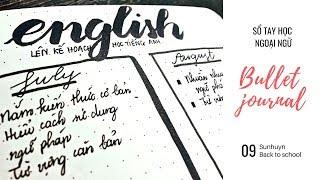 english
LÊN KẾ HOẠCH HỌC TIẾNG ANH
July
Nắm kiến thức cơ bản
Hiểu cách sử dụng
ngữ pháp
Từ vựng căn bản
August
Nhuần nhu
ngữ phá
Từ vự
SỔ TAY HỌC
NGOẠI NGỮ
Bullet
journal
09
Sunhuyn
Back to school